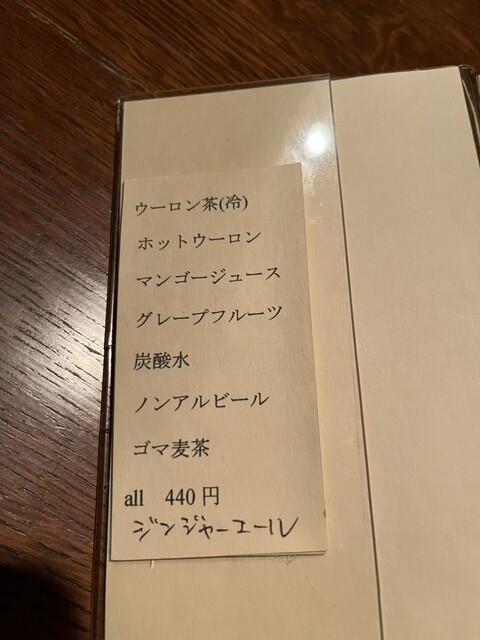 ウーロン茶(冷)
ホットウーロン
マンゴージュース
グレープフルーツ
炭酸水
ノンアルビール
ゴマ麦茶
all 440円
ジンジャーエール